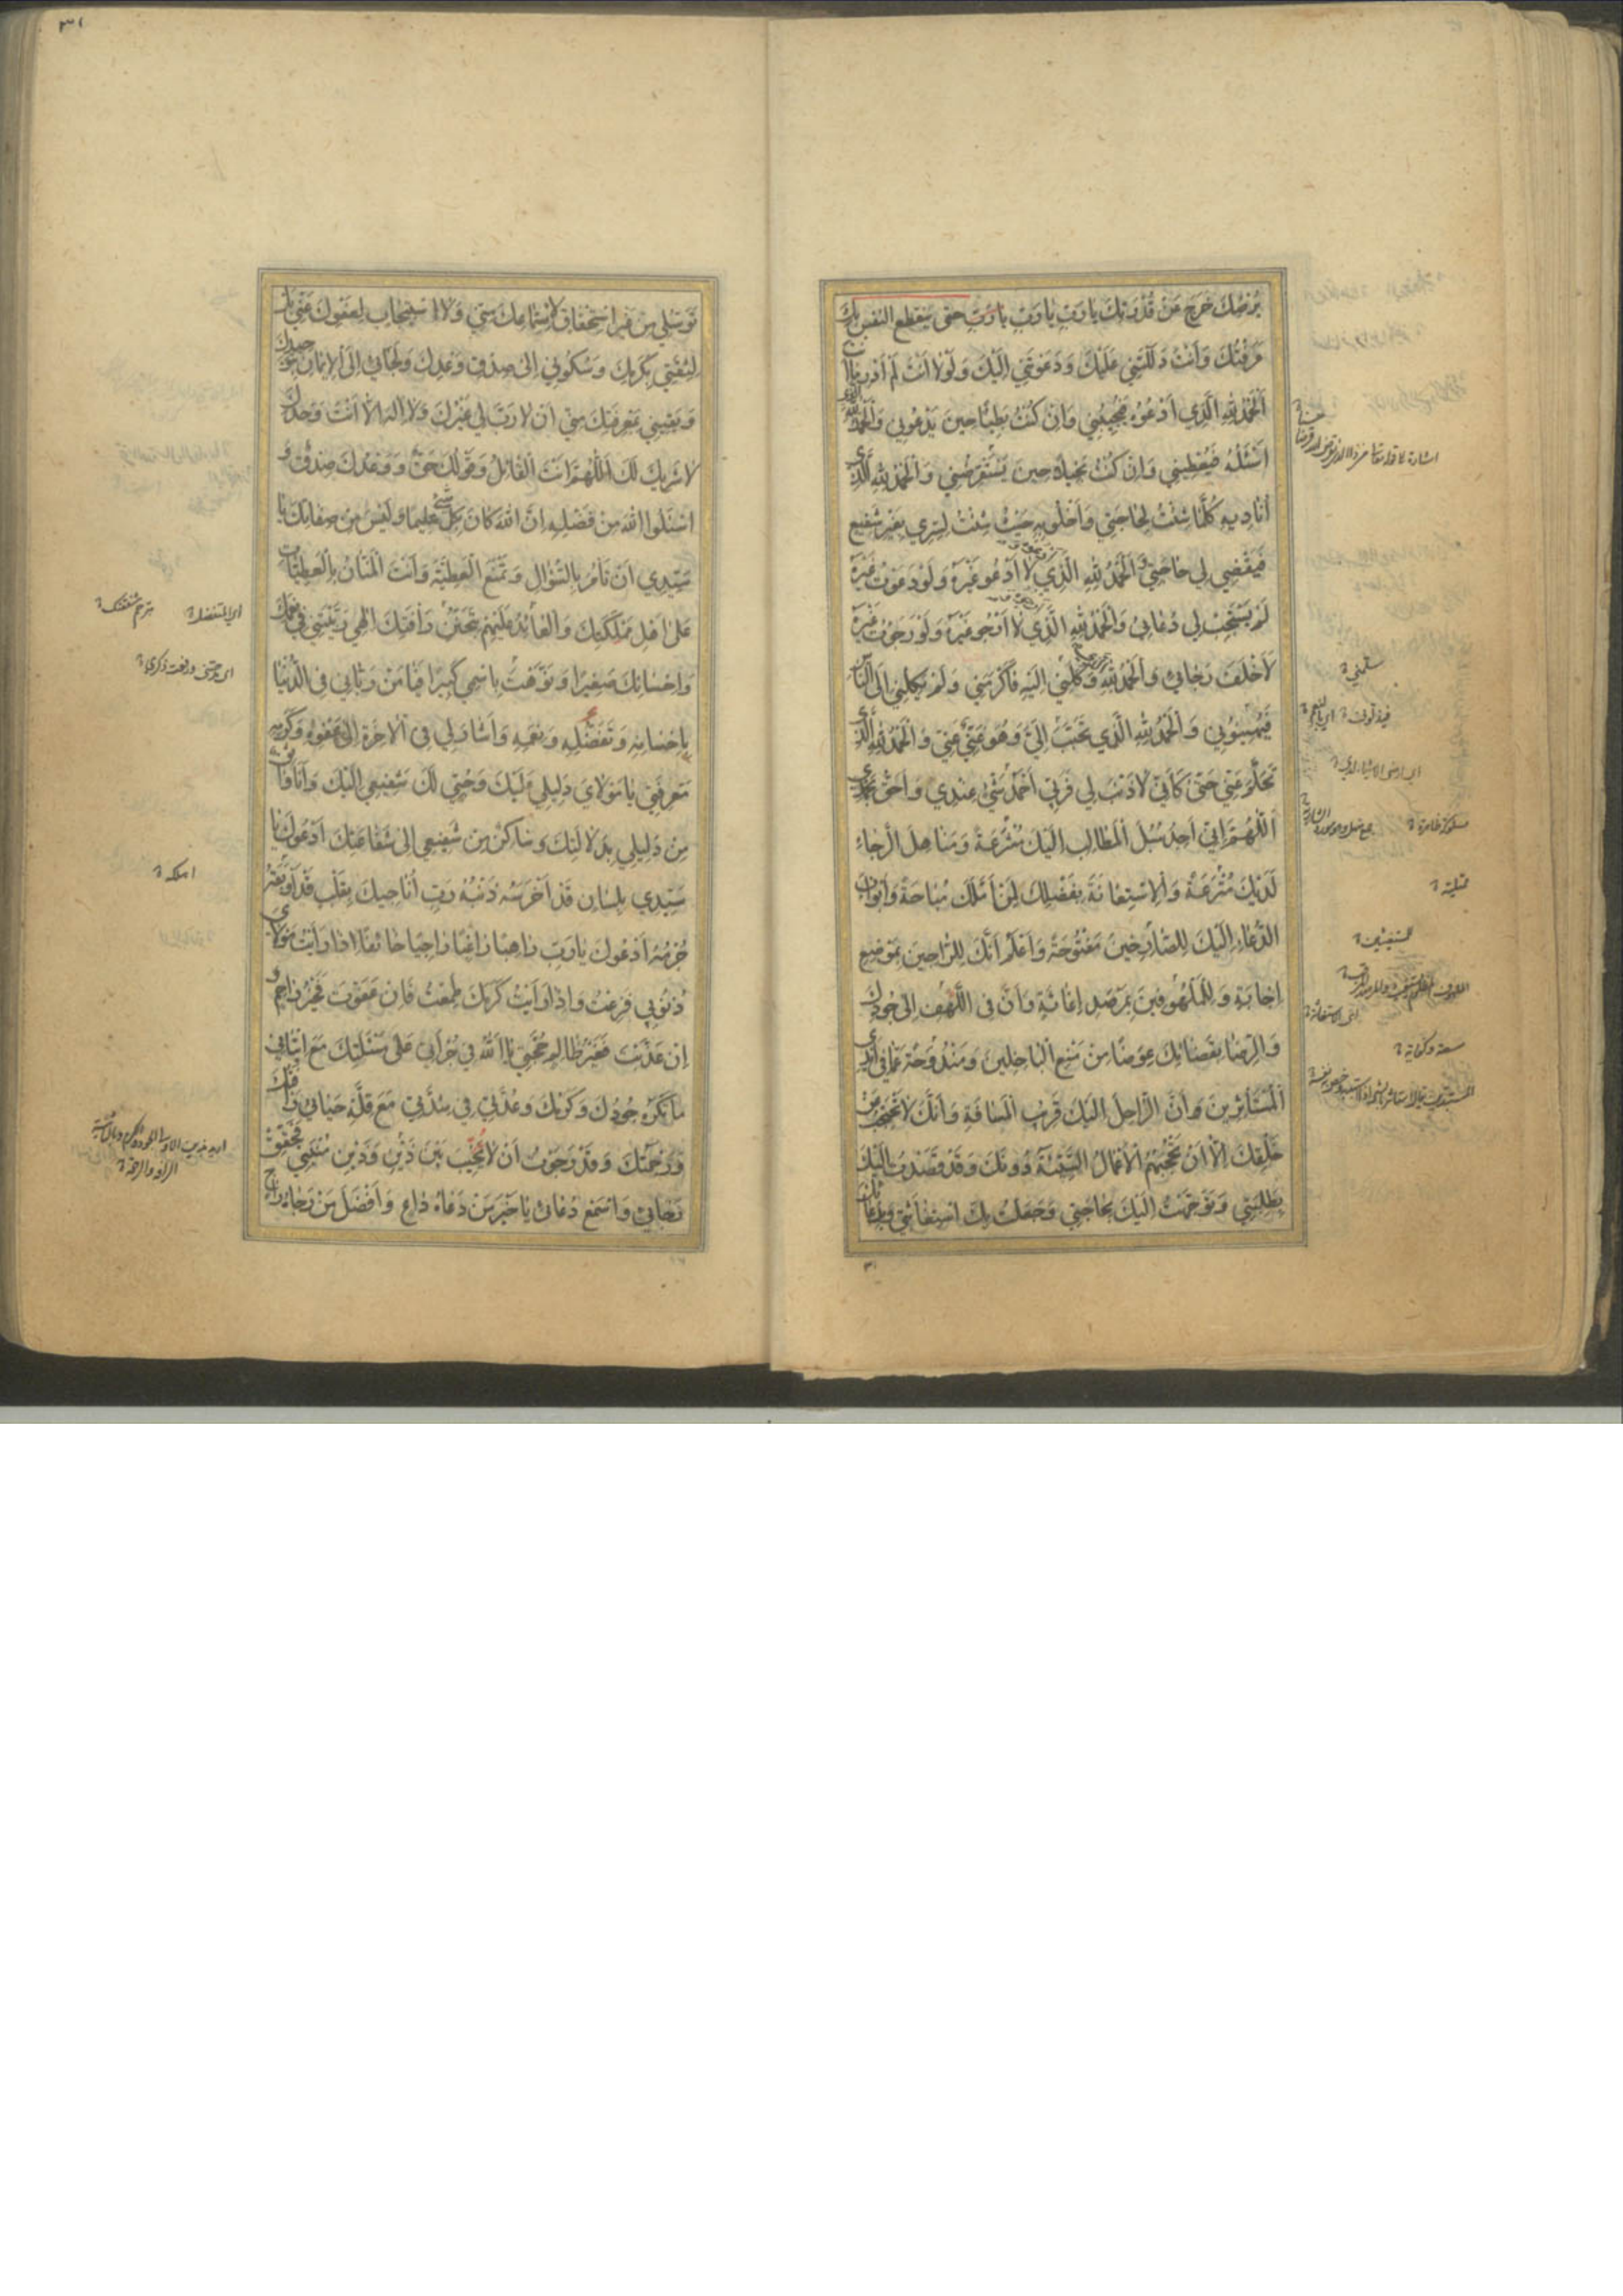 يُرْضِكَ خَرَجَ مِنْ قُدْرَتِكَ يا رَبِّ يا رَبِّ يا رَبِّ حتى ينقطع النفس بِكَ
عَرَفْتُكَ وَاَنْتَ دَلَلْتَنِي عَلَيْكَ وَدَعَوْتَنِي اِلَيْكَ وَلَوْلا اَنْتَ لَمْ اَدْرِ ما اَنْتَ
اَلْحَمْدُ لِلّهِ الَّذِي اَدْعُوهُ فَيُجِيبُنِي وَاِنْ كُنْتُ بَطِيئًا حِينَ يَدْعُونِي وَالْحَمْدُ لِلّهِ الَّذِي
اَسْئَلُهُ فَيُعْطِينِي وَاِنْ كُنْتُ بَخِيلًا حِينَ يَسْتَقْرِضُنِي وَالْحَمْدُ لِلّهِ الَّذِي
اُنَادِيهِ كُلَّمَا شِئْتُ لِحَاجَتِي وَاَخْلُو بِهِ حَيْثُ شِئْتُ لِسِرِّي بِغَيْرِ شَفِيعٍ
فَيَقْضِي لِي حَاجَتِي وَالْحَمْدُ لِلّهِ الَّذِي لا اَدْعُو غَيْرَهُ وَلَوْ دَعَوْتُ غَيْرَهُ
لَمْ يَسْتَجِبْ لِي دُعَائِي وَالْحَمْدُ لِلّهِ الَّذِي لا اَرْجُو غَيْرَهُ وَلَوْ رَجَوْتُ غَيْرَهُ
لَاَخْلَفَ رَجَائِي وَالْحَمْدُ لِلّهِ وَكَلَنِي اِلَيْهِ فَاَكْرَمَنِي وَلَمْ يَكِلْنِي اِلَى النَّاسِ
فَيُهِينُونِي وَالْحَمْدُ لِلّهِ الَّذِي تَحَبَّبَ اِلَيَّ وَهُوَ غَنِيٌّ عَنِّي وَالْحَمْدُ لِلّهِ الَّذِي
يَحْلُمُ عَنِّي حَتَّى كَاَنِّي لا ذَنْبَ لِي فَرَبِّي اَحْمَدُ شَيْءٍ عِنْدِي وَاَحَقُّ بِحَمْدِي
اَللّهُمَّ اِنِّي اَجِدُ سُبُلَ الْمَطَالِبِ اِلَيْكَ مُشْرَعَةً وَمَنَاهِلَ الرَّجَاءِ
لَدَيْكَ مُتْرَعَةً وَالاِسْتِعَانَةَ بِفَضْلِكَ لِمَنْ اَمَّلَكَ مُبَاحَةً وَاَبْوَابَ
الدُّعَاءِ اِلَيْكَ لِلصَّارِخِينَ مَفْتُوحَةً وَاَعْلَمُ اَنَّكَ لِلرَّاجِينَ بِمَوْضِعِ
اِجَابَةٍ وَلِلْمَلْهُوفِينَ بِمَرْصَدِ اِغَاثَةٍ وَاَنَّ فِي اللَّهْفِ اِلَى جُودِكَ
وَالرِّضَا بِقَضَائِكَ عِوَضًا مِنْ مَنْعِ الْبَاخِلِينَ وَمَنْدُوحَةً عَمَّا فِي اَيْدِي
الْمُسْتَأْثِرِينَ وَاَنَّ الرَّاحِلَ اِلَيْكَ قَرِيبُ الْمَسَافَةِ وَاَنَّكَ لا تَحْتَجِبُ عَنْ
خَلْقِكَ اِلّا اَنْ تَحْجُبَهُمُ الاَعْمَالُ السَّيِّئَةُ دُونَكَ وَقَدْ قَصَدْتُ اِلَيْكَ
بِطَلِبَتِي وَتَوَجَّهْتُ اِلَيْكَ بِحَاجَتِي وَجَعَلْتُ بِكَ اسْتِغَاثَتِي وَبِدُعَائِكَ
سلمنی
مستغیثین
٣١
تَوَسُّلِي مِنْ غَيْرِ اسْتِحْقَاقٍ لاِسْتِمَاعِكَ مِنِّي وَلا اسْتِيجَابٍ لِعَفْوِكَ عَنِّي بَلْ
لِثِقَتِي بِكَرَمِكَ وَسُكُونِي اِلَى صِدْقِ وَعْدِكَ وَلَجَائِي اِلَى الاِيمَانِ بِتَوْحِيدِكَ
وَيَقِينِي بِمَعْرِفَتِكَ مِنِّي اَنْ لا رَبَّ لِي غَيْرُكَ وَلا اِلهَ اِلّا اَنْتَ وَحْدَكَ
لا شَرِيكَ لَكَ اَللّهُمَّ اَنْتَ الْقَائِلُ وَقَوْلُكَ حَقٌّ وَوَعْدُكَ صِدْقٌ وَ
اسْئَلُوا اللهَ مِنْ فَضْلِهِ اِنَّ اللهَ كَانَ بِكُلِّ شَيْءٍ عَلِيمًا وَلَيْسَ مِنْ صِفَاتِكَ يَا
سَيِّدِي اَنْ تَأْمُرَ بِالسُّؤَالِ وَتَمْنَعَ الْعَطِيَّةَ وَاَنْتَ الْمَنَّانُ بِالْعَطِيَّاتِ
عَلَى اَهْلِ مَمْلَكَتِكَ وَالْعَائِدُ عَلَيْهِمْ بِتَحَنُّنِ رَاْفَتِكَ اِلهِي رَبَّيْتَنِي فِي نِعَمِكَ
وَاِحْسَانِكَ صَغِيرًا وَنَوَّهْتَ بِاسْمِي كَبِيرًا فَيَا مَنْ رَبَّانِي فِي الدُّنْيَا
بِاِحْسَانِهِ وَتَفَضُّلِهِ وَنِعَمِهِ وَاَشَارَ لِي فِي الاخِرَةِ اِلَى عَفْوِهِ وَكَرَمِهِ
مَعْرِفَتِي يَا مَوْلايَ دَلِيلِي عَلَيْكَ وَحُبِّي لَكَ شَفِيعِي اِلَيْكَ وَاَنَا وَاثِقٌ
مِنْ دَلِيلِي بِدَلالَتِكَ وَسَاكِنٌ مِنْ شَفِيعِي اِلَى شَفَاعَتِكَ اَدْعُوكَ يَا
سَيِّدِي بِلِسَانٍ قَدْ اَخْرَسَهُ ذَنْبُهُ رَبِّ اُنَاجِيكَ بِقَلْبٍ قَدْ اَوْبَقَهُ
جُرْمُهُ اَدْعُوكَ يَا رَبِّ رَاهِبًا رَاغِبًا رَاجِيًا خَائِفًا اِذَا رَاَيْتُ مَوْلايَ
ذُنُوبِي فَزِعْتُ وَاِذَا رَاَيْتُ كَرَمَكَ طَمِعْتُ فَاِنْ عَفَوْتَ فَخَيْرُ رَاحِمٍ وَ
اِنْ عَذَّبْتَ فَغَيْرُ ظَالِمٍ حُجَّتِي يَا اَللهُ فِي جُرْاَتِي عَلَى مَسْئَلَتِكَ مَعَ اِتْيَانِي
مَا تَكْرَهُ جُودُكَ وَكَرَمُكَ وَعُدَّتِي فِي شِدَّتِي مَعَ قِلَّةِ حَيَائِي رَاْفَتُكَ
وَرَحْمَتُكَ وَقَدْ رَجَوْتُ اَنْ لا تُخَيِّبَ بَيْنَ ذَيْنِ وَذَيْنِ مُنْيَتِي فَحَقِّقْ
رَجَائِي وَاسْمَعْ دُعَائِي يَا خَيْرَ مَنْ دَعَاهُ دَاعٍ وَاَفْضَلَ مَنْ رَجَاهُ رَاجٍ
ای المتفضل